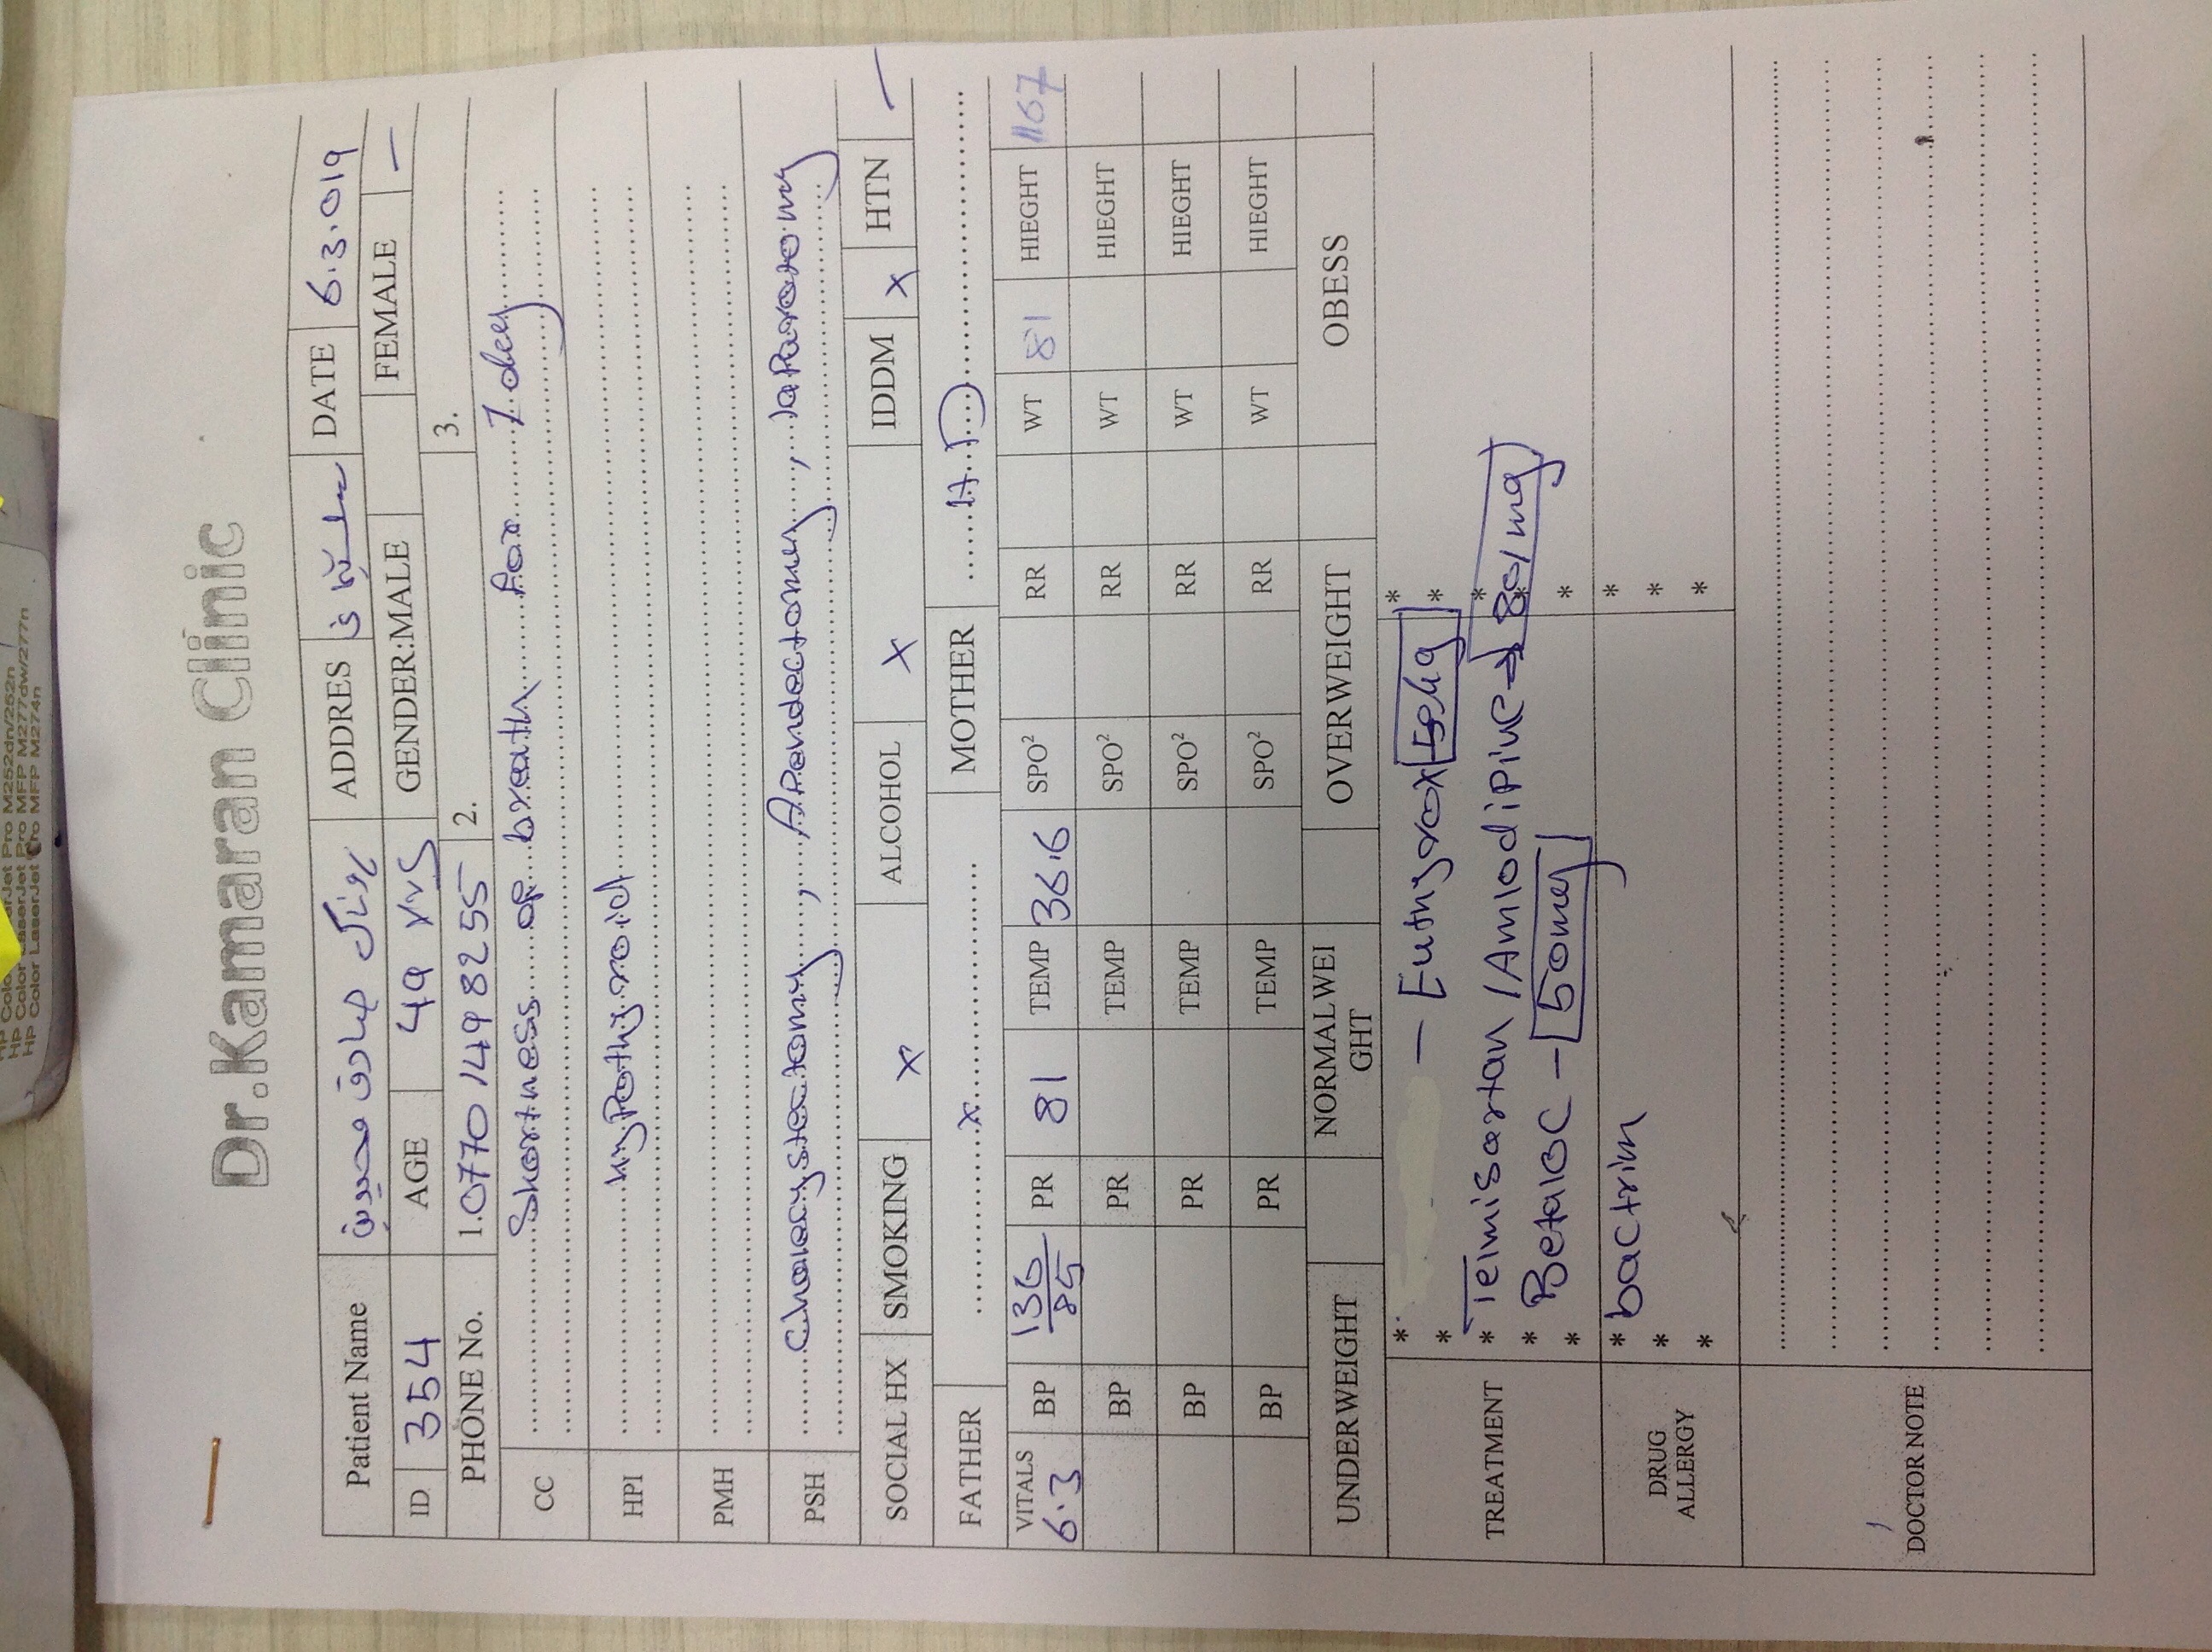 Dr.Kamaran Clinic
Patient Name صادق محيدين ADDRES DATE 6.3.019
ID 354 AGE 49 yrs GENDER:MALE FEMALE —
PHONE No. 1.0770 149 8255 2. 3.
CC Shortness of breath for 1 day
HPI hypothyroid
PMH
PSH cholecystectomy, Appendectomy, laparotomy
SOCIAL HX SMOKING x ALCOHOL x IDDM x HTN —
FATHER x MOTHER
VITALS 6.3 BP 136/85 PR 81 TEMP 36.6 SPO² RR WT 81 HIEGHT 167
BP PR TEMP SPO² RR WT HIEGHT
BP PR TEMP SPO² RR WT HIEGHT
BP PR TEMP SPO² RR WT HIEGHT
UNDERWEIGHT NORMALWEIGHT OVERWEIGHT OBESS
TREATMENT
* — Euthyrox *
* *
* Telmisartan /Amlodipine → 80/mg *
* Betaloc — 50mg
* *
DRUG ALLERGY
* bactrim *
* *
* *
DOCTOR NOTE
HP Color LaserJet Pro M252dn/252n
HP Color LaserJet Pro MFP M277dw/277n
HP Color LaserJet Pro MFP M274n